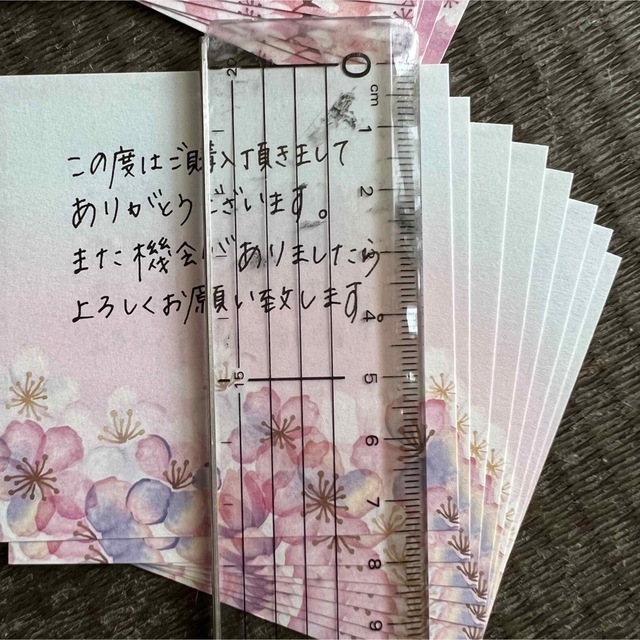 この度はご購入頂きまして
ありがとうございます。
また機会がありましたら
よろしくお願い致します。
0
cm
1
2
3
4
5
6
7
8
9
20
15